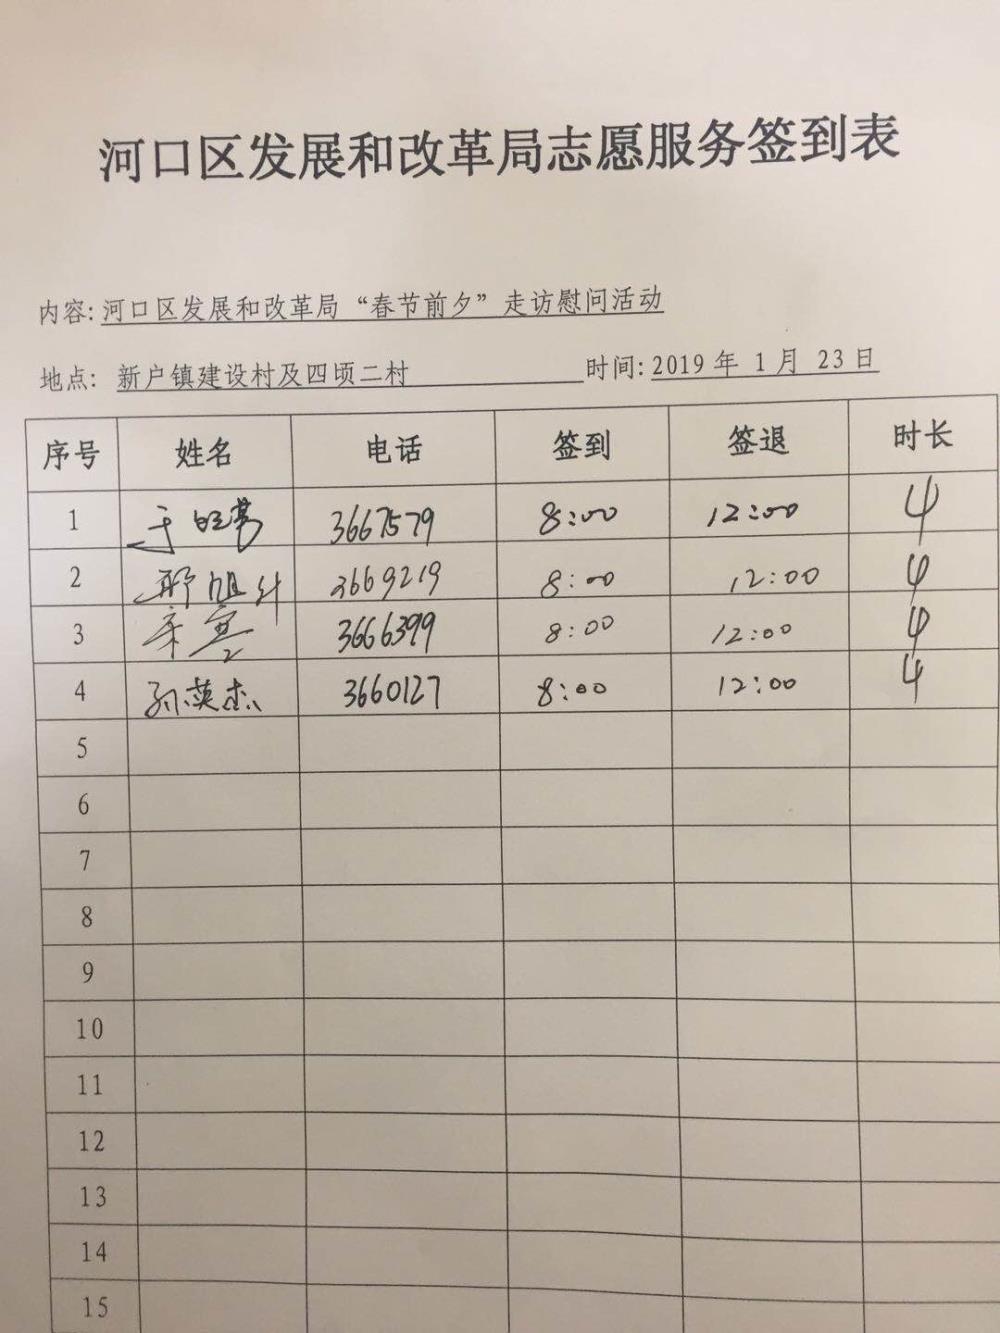 河口区发展和改革局志愿服务签到表
内容: 河口区发展和改革局“春节前夕”走访慰问活动
地点: 新户镇建设村及四顷二村 时间: 2019 年 1 月 23 日
序号 姓名 电话 签到 签退 时长
1 3667579 8:00 12:00 4
2 3669219 8:00 12:00 4
3 3666399 8:00 12:00 4
4 孙英杰 3660127 8:00 12:00 4
5
6
7
8
9
10
11
12
13
14
15